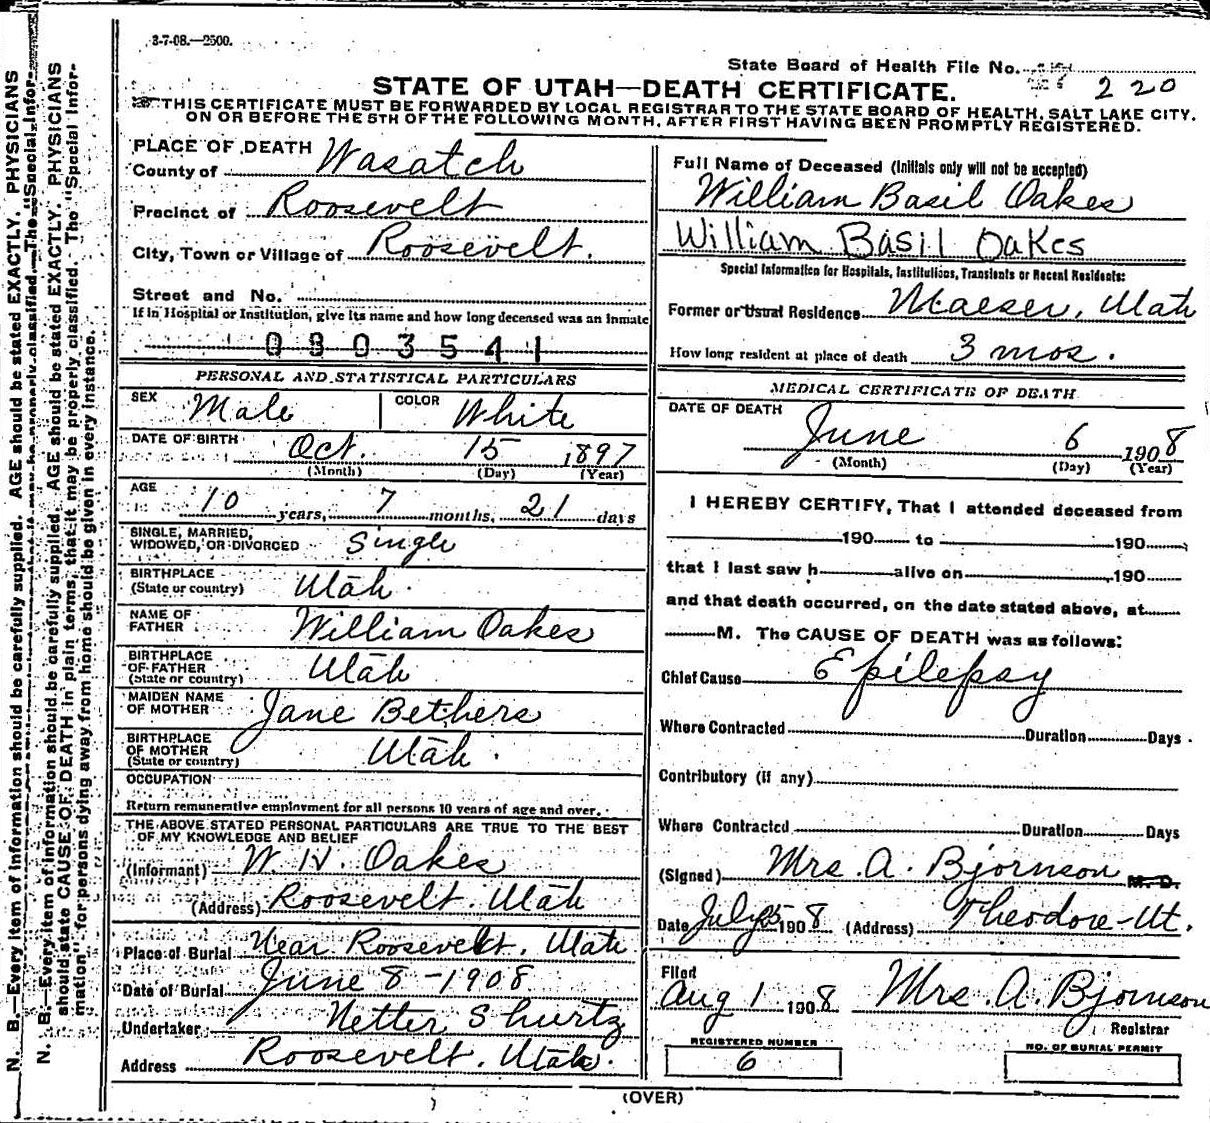 3-7-08.—2500.
State Board of Health File No.
220
STATE OF UTAH—DEATH CERTIFICATE.
THIS CERTIFICATE MUST BE FORWARDED BY LOCAL REGISTRAR TO THE STATE BOARD OF HEALTH, SALT LAKE CITY,
ON OR BEFORE THE 5TH OF THE FOLLOWING MONTH, AFTER FIRST HAVING BEEN PROMPTLY REGISTERED.
PLACE OF DEATH
County of Wasatch
Precinct of Roosevelt
City, Town or Village of Roosevelt.
Street and No.
If in Hospital or Institution, give its name and how long deceased was an inmate
0803541
PERSONAL AND STATISTICAL PARTICULARS
SEX Male COLOR White
DATE OF BIRTH Oct. 15 1897
(Month) (Day) (Year)
AGE
10 years, 7 months, 21 days
SINGLE, MARRIED,
WIDOWED, OR DIVORCED Single
BIRTHPLACE
(State or country) Utah.
NAME OF
FATHER William Oakes
BIRTHPLACE
OF FATHER
(State or country) Utah
MAIDEN NAME
OF MOTHER Jane Bethers
BIRTHPLACE
OF MOTHER
(State or country) Utah.
OCCUPATION
Return remunerative employment for all persons 10 years of age and over.
THE ABOVE STATED PERSONAL PARTICULARS ARE TRUE TO THE BEST
OF MY KNOWLEDGE AND BELIEF
(Informant) W. H. Oakes
(Address) Roosevelt, Utah
Place of Burial Near Roosevelt, Utah
Date of Burial June 8-1908
Undertaker Netter Shurtz
Address Roosevelt, Utah.
Full Name of Deceased (Initials only will not be accepted)
William Basil Oakes
William Basil Oakes
Special Information for Hospitals, Institutions, Transients or Recent Residents:
Former or Usual Residence Maeser, Utah
How long resident at place of death 3 mos.
MEDICAL CERTIFICATE OF DEATH
DATE OF DEATH
June 6 1908
(Month) (Day) (Year)
I HEREBY CERTIFY, That I attended deceased from
190 to 190
that I last saw h alive on 190
and that death occurred, on the date stated above, at
M. The CAUSE OF DEATH was as follows:
Chief Cause Epilepsy
Where Contracted Duration Days
Contributory (if any)
Where Contracted Duration Days
(Signed) Mrs. A. Bjornson M. D.
Date July 25 1908 (Address) Theodore-Ut.
Filed
Aug 1 1908 Mrs. A. Bjornson
Registrar
REGISTERED NUMBER
6
NO. OF BURIAL PERMIT
(OVER)
N. B.—Every item of information should be carefully supplied. AGE should be stated EXACTLY. PHYSICIANS
N. B.—Every item of information should be carefully supplied. AGE should be stated EXACTLY. PHYSICIANS
should state CAUSE OF DEATH in plain terms, that it may be properly classified. The "Special Infor-
mation" for persons dying away from home should be given in every instance.